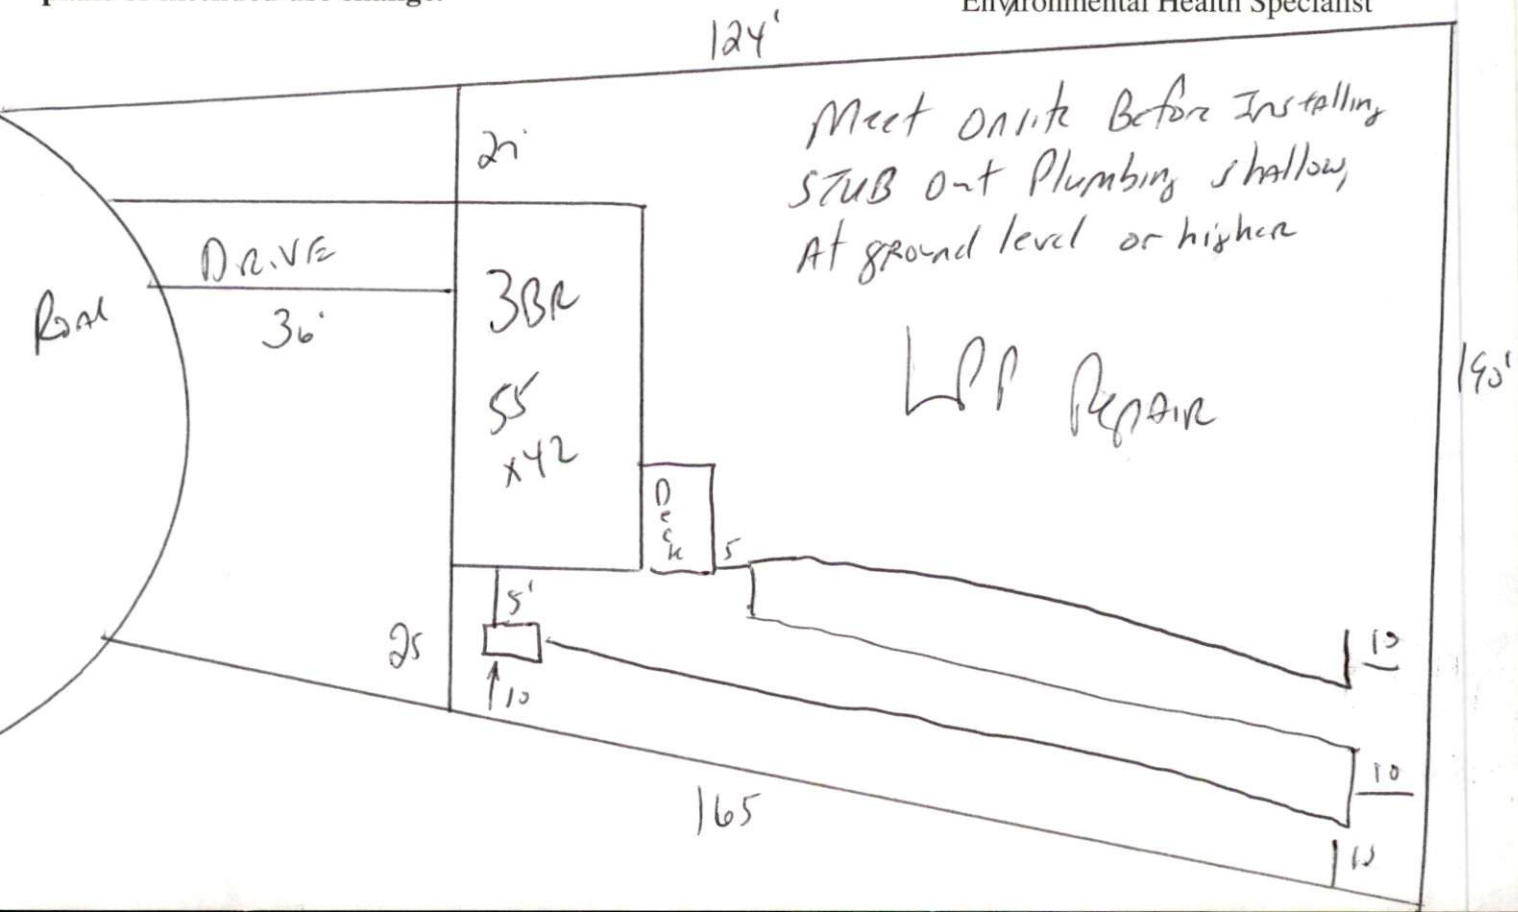 Environmental Health Specialist
124'
Meet Onsite Before Installing
STUB Out Plumbing shallow,
At ground level or higher
DRIVE
36'
Road
3BR
55
x42
LPP Repair
190'
Deck
5
5'
25
10
10
10
10
165